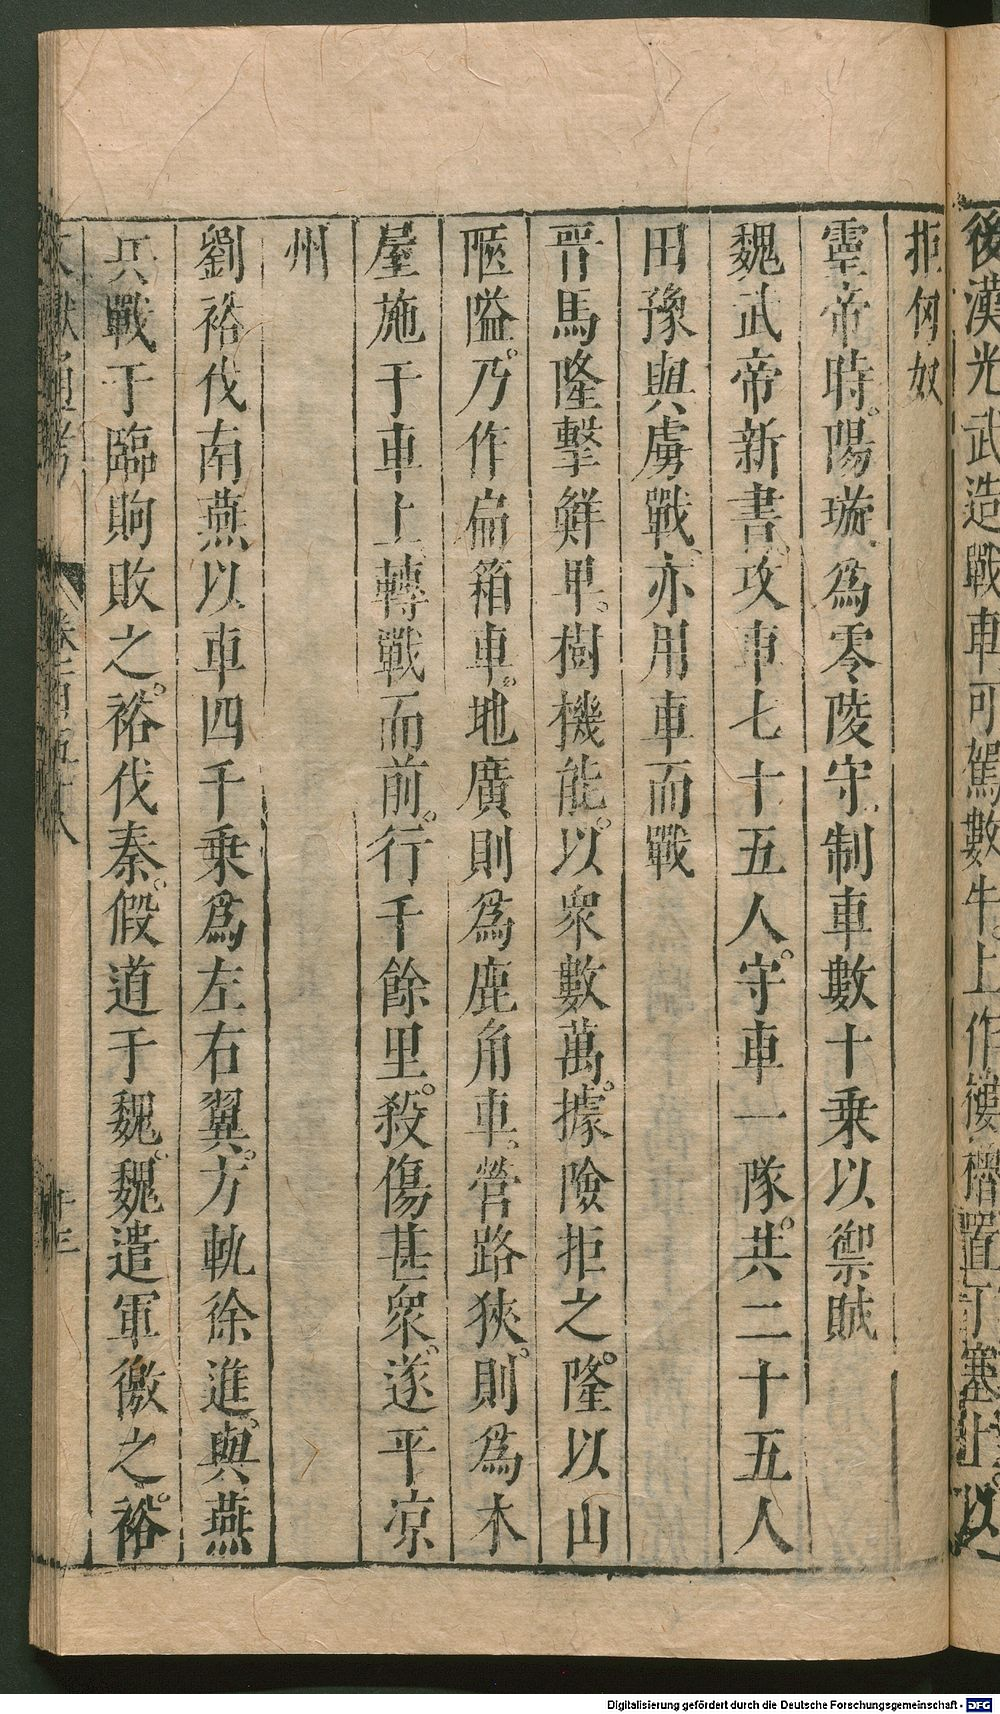 後漢光武造戰車可駕數牛上作樓櫓置于塞上以
拒匈奴
靈帝時陽璇爲零陵守制車數十乗以禦賊
魏武帝新書攻車七十五人守車一隊共二十五人
田豫與虜戰亦用車而戰
晉馬隆擊鮮卑樹機能以衆數萬據險拒之隆以山
陿隘乃作扁箱車地廣則爲鹿角車營路狹則爲木
屋施于車上轉戰而前行千餘里殺傷甚衆遂平凉
州
劉裕伐南燕以車四千乗爲左右翼方軌徐進與燕
兵戰于臨朐敗之裕伐秦假道于魏魏遣軍徼之裕
文獻通考 卷一百五十八 十三
Digitalisierung gefördert durch die Deutsche Forschungsgemeinschaft - DFG